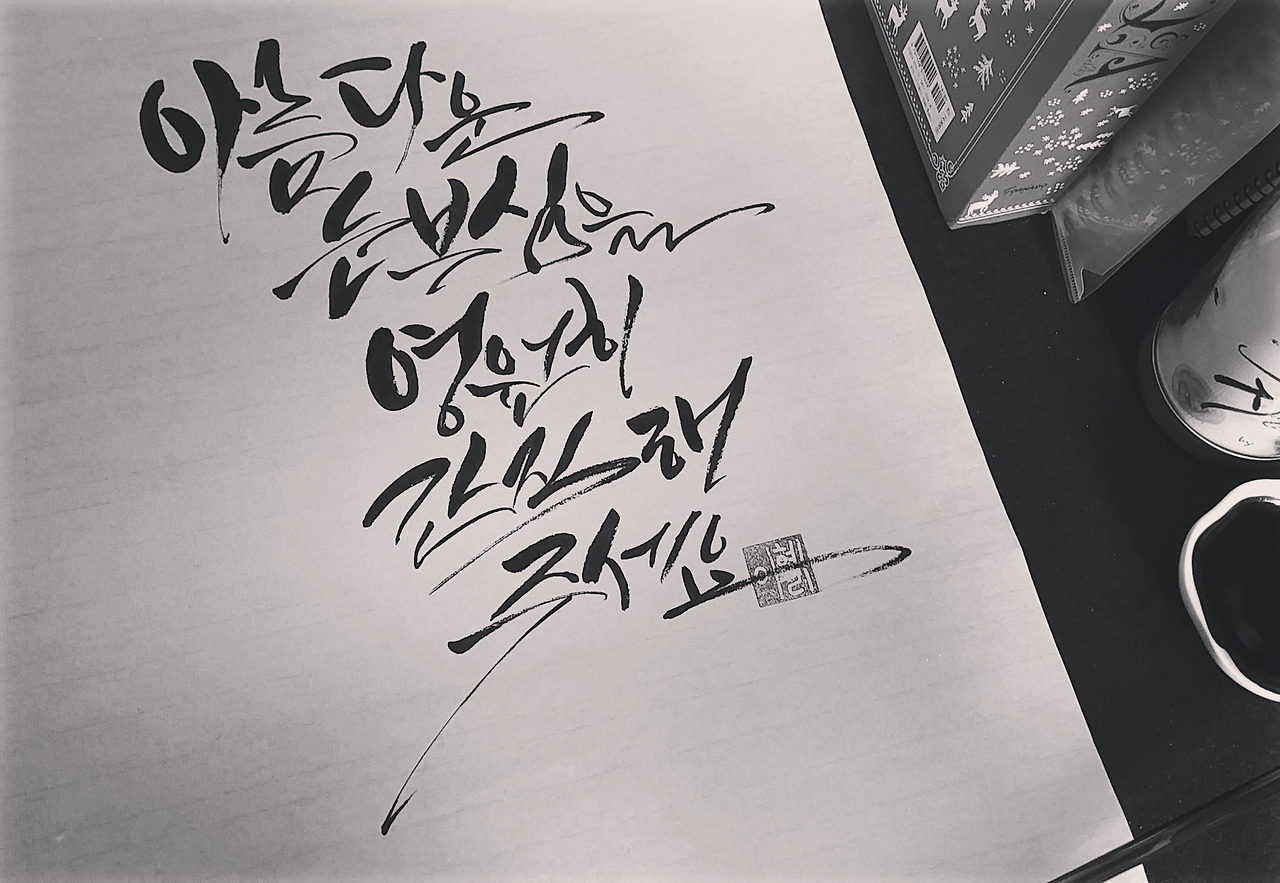 아름다운
영원히
간직해
주세요
TEA
by